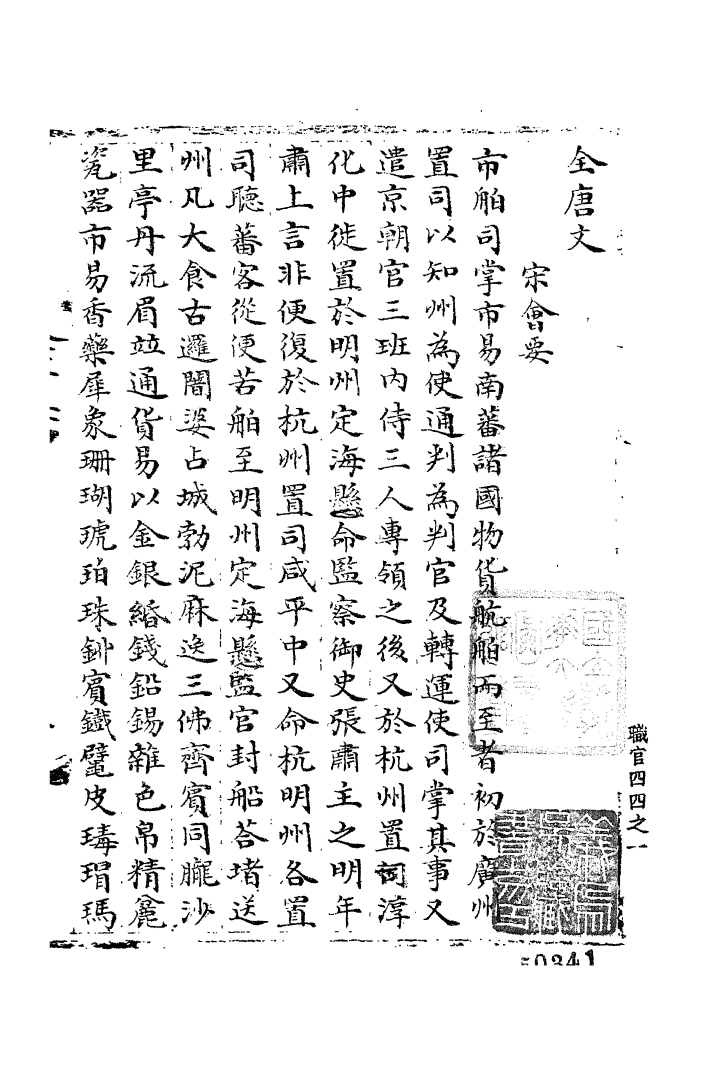 全唐文
宋會要
市舶司掌市易南蕃諸國物貨航舶而至者初於廣州
置司以知州為使通判為判官及轉運使司掌其事又
遣京朝官三班內侍三人專領之後又於杭州置司淳
化中徙置於明州定海縣命監察御史張肅主之明年
肅上言非便復於杭州置司咸平中又命杭明州各置
司聽蕃客從便若舶至明州定海縣監官封船荅堵送
州凡大食古邏闍婆占城勃泥麻逸三佛齊賓同朧沙
里亭丹流眉竝通貨易以金銀緡錢鉛錫雜色帛精麄
瓷器市易香藥犀象珊瑚琥珀珠鉳賓鐵鼊皮瑇瑁瑪
職官四四之一
50341